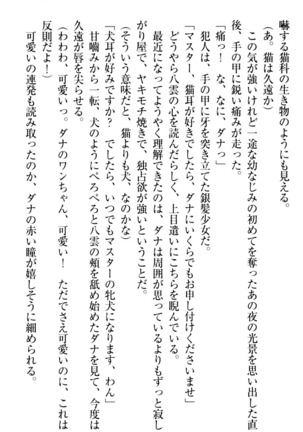 嚇する猫科の生き物のようにも見える。
(あ。猫は久遠か)
この気が強いけれど一途な幼なじみの初めてを奪ったあの夜の光景を思い出した直
後、手の甲に鋭い痛みが走った。
「痛っ！　な、なに、ダナっ」
犯人は、手の甲に牙を突き立てた銀髪少女だ。
「マスター、猫耳が好きでしたら、ダナにいくらでもお申し付けくださいませ」
どうやら八雲の心を読んだらしく、上目遣いにこちらを睨んでいる。
最近になってようやく理解できたのは、ダナは周囲が思っているよりもずっと寂し
がり屋で、ヤキモチ焼きで、独占欲が強いということだ。
(そういう意味だと、猫よりも犬、なのかな)
「犬耳が好みですか？　でしたら、いつでもマスターの牝犬になります、わん」
甘噛みから一転、犬のようにぺろぺろと八雲の頬を舐め始めたダナを見て、今度は
久遠が唇を尖らせる。
(わわわ、可愛いっ。ダナのワンちゃん、可愛い！　ただでさえ可愛いのに、これは
反則だよ！)
可愛いの連発も読み取ったのか、ダナの赤い瞳が嬉しそうに細められる。